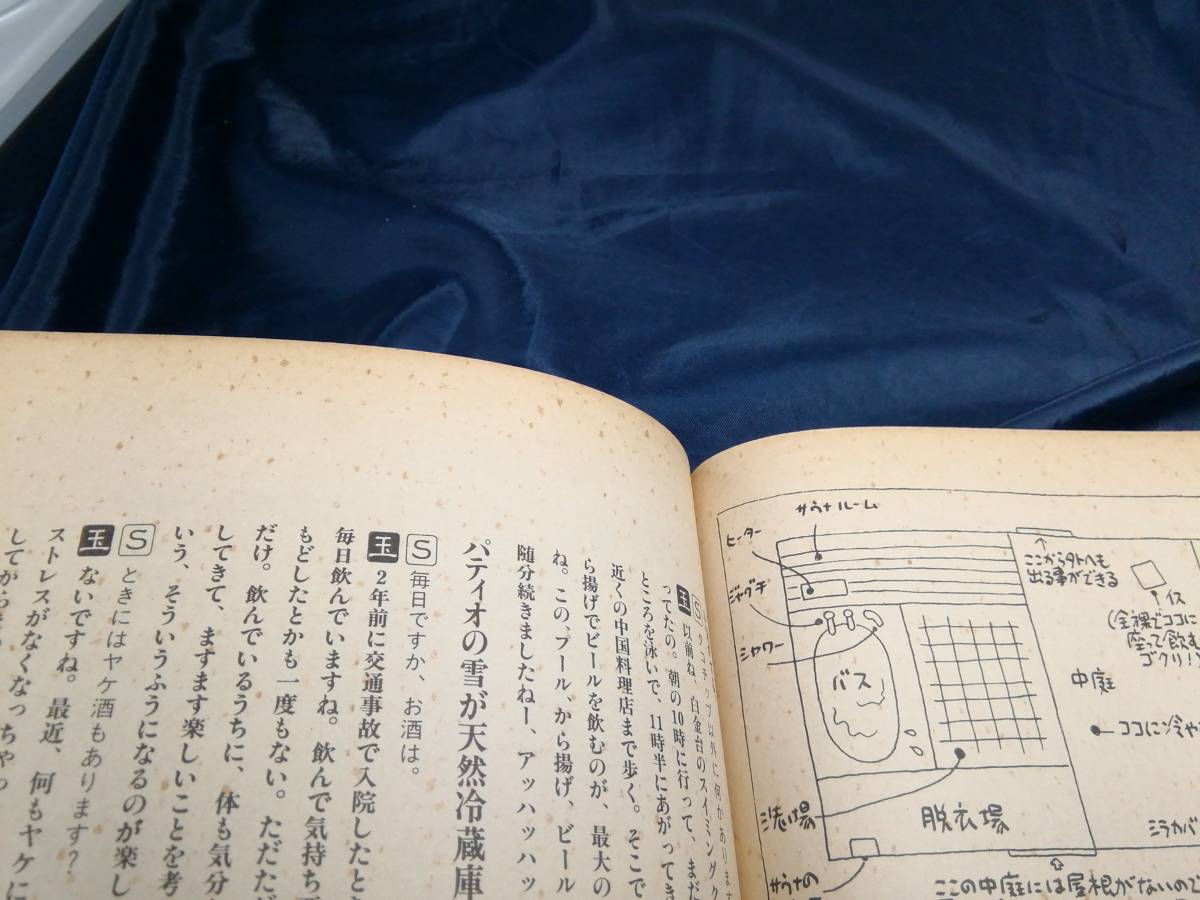 サウナルーム
ヒーター
ジャグチ
シャワー
バス
洗い場
脱衣場
サウナの
ここから外へも
出る事ができる
イス
(全裸でココに
座って飲む
ゴクリ!
中庭
ココに冷や
ミラカバ
ここの中庭には屋根がないので
S コチップ以外に何かありま
玉 以前ね、白金台のスイミングク
ってたの。朝の10時に行って、まだ
ところを泳いで、11時半にあがってき
近くの中国料理店まで歩く。そこで
ら揚げでビールを飲むのが、最大の
ね。この、プール、から揚げ、ビール
随分続きましたねー、アッハッハッ
パティオの雪が天然冷蔵庫
S 毎日ですか、お酒は。
玉 2年前に交通事故で入院したと
毎日飲んでいますね。飲んで気持ち
もどしたとかも一度もない。ただただ
だけ。飲んでいるうちに、体も気分
してきて、ますます楽しいことを考
いう、そういうふうになるのが楽し
S ときにはヤケ酒もあります?
玉 ないですね。最近、何もヤケに
ストレスがなくなっちゃっ
してから